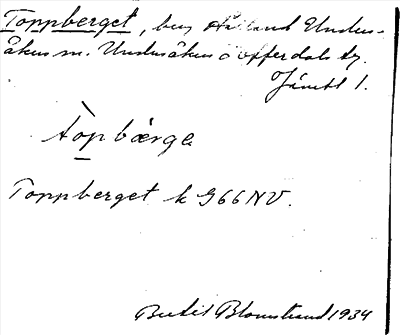 Toppberget, berg Hålland Unders-
åkers sn. Undersåkers o Offerdals tg.
Jämtl 1.
tòpbærge
Toppberget k G66NV.
Bertil Blomstrand 1934